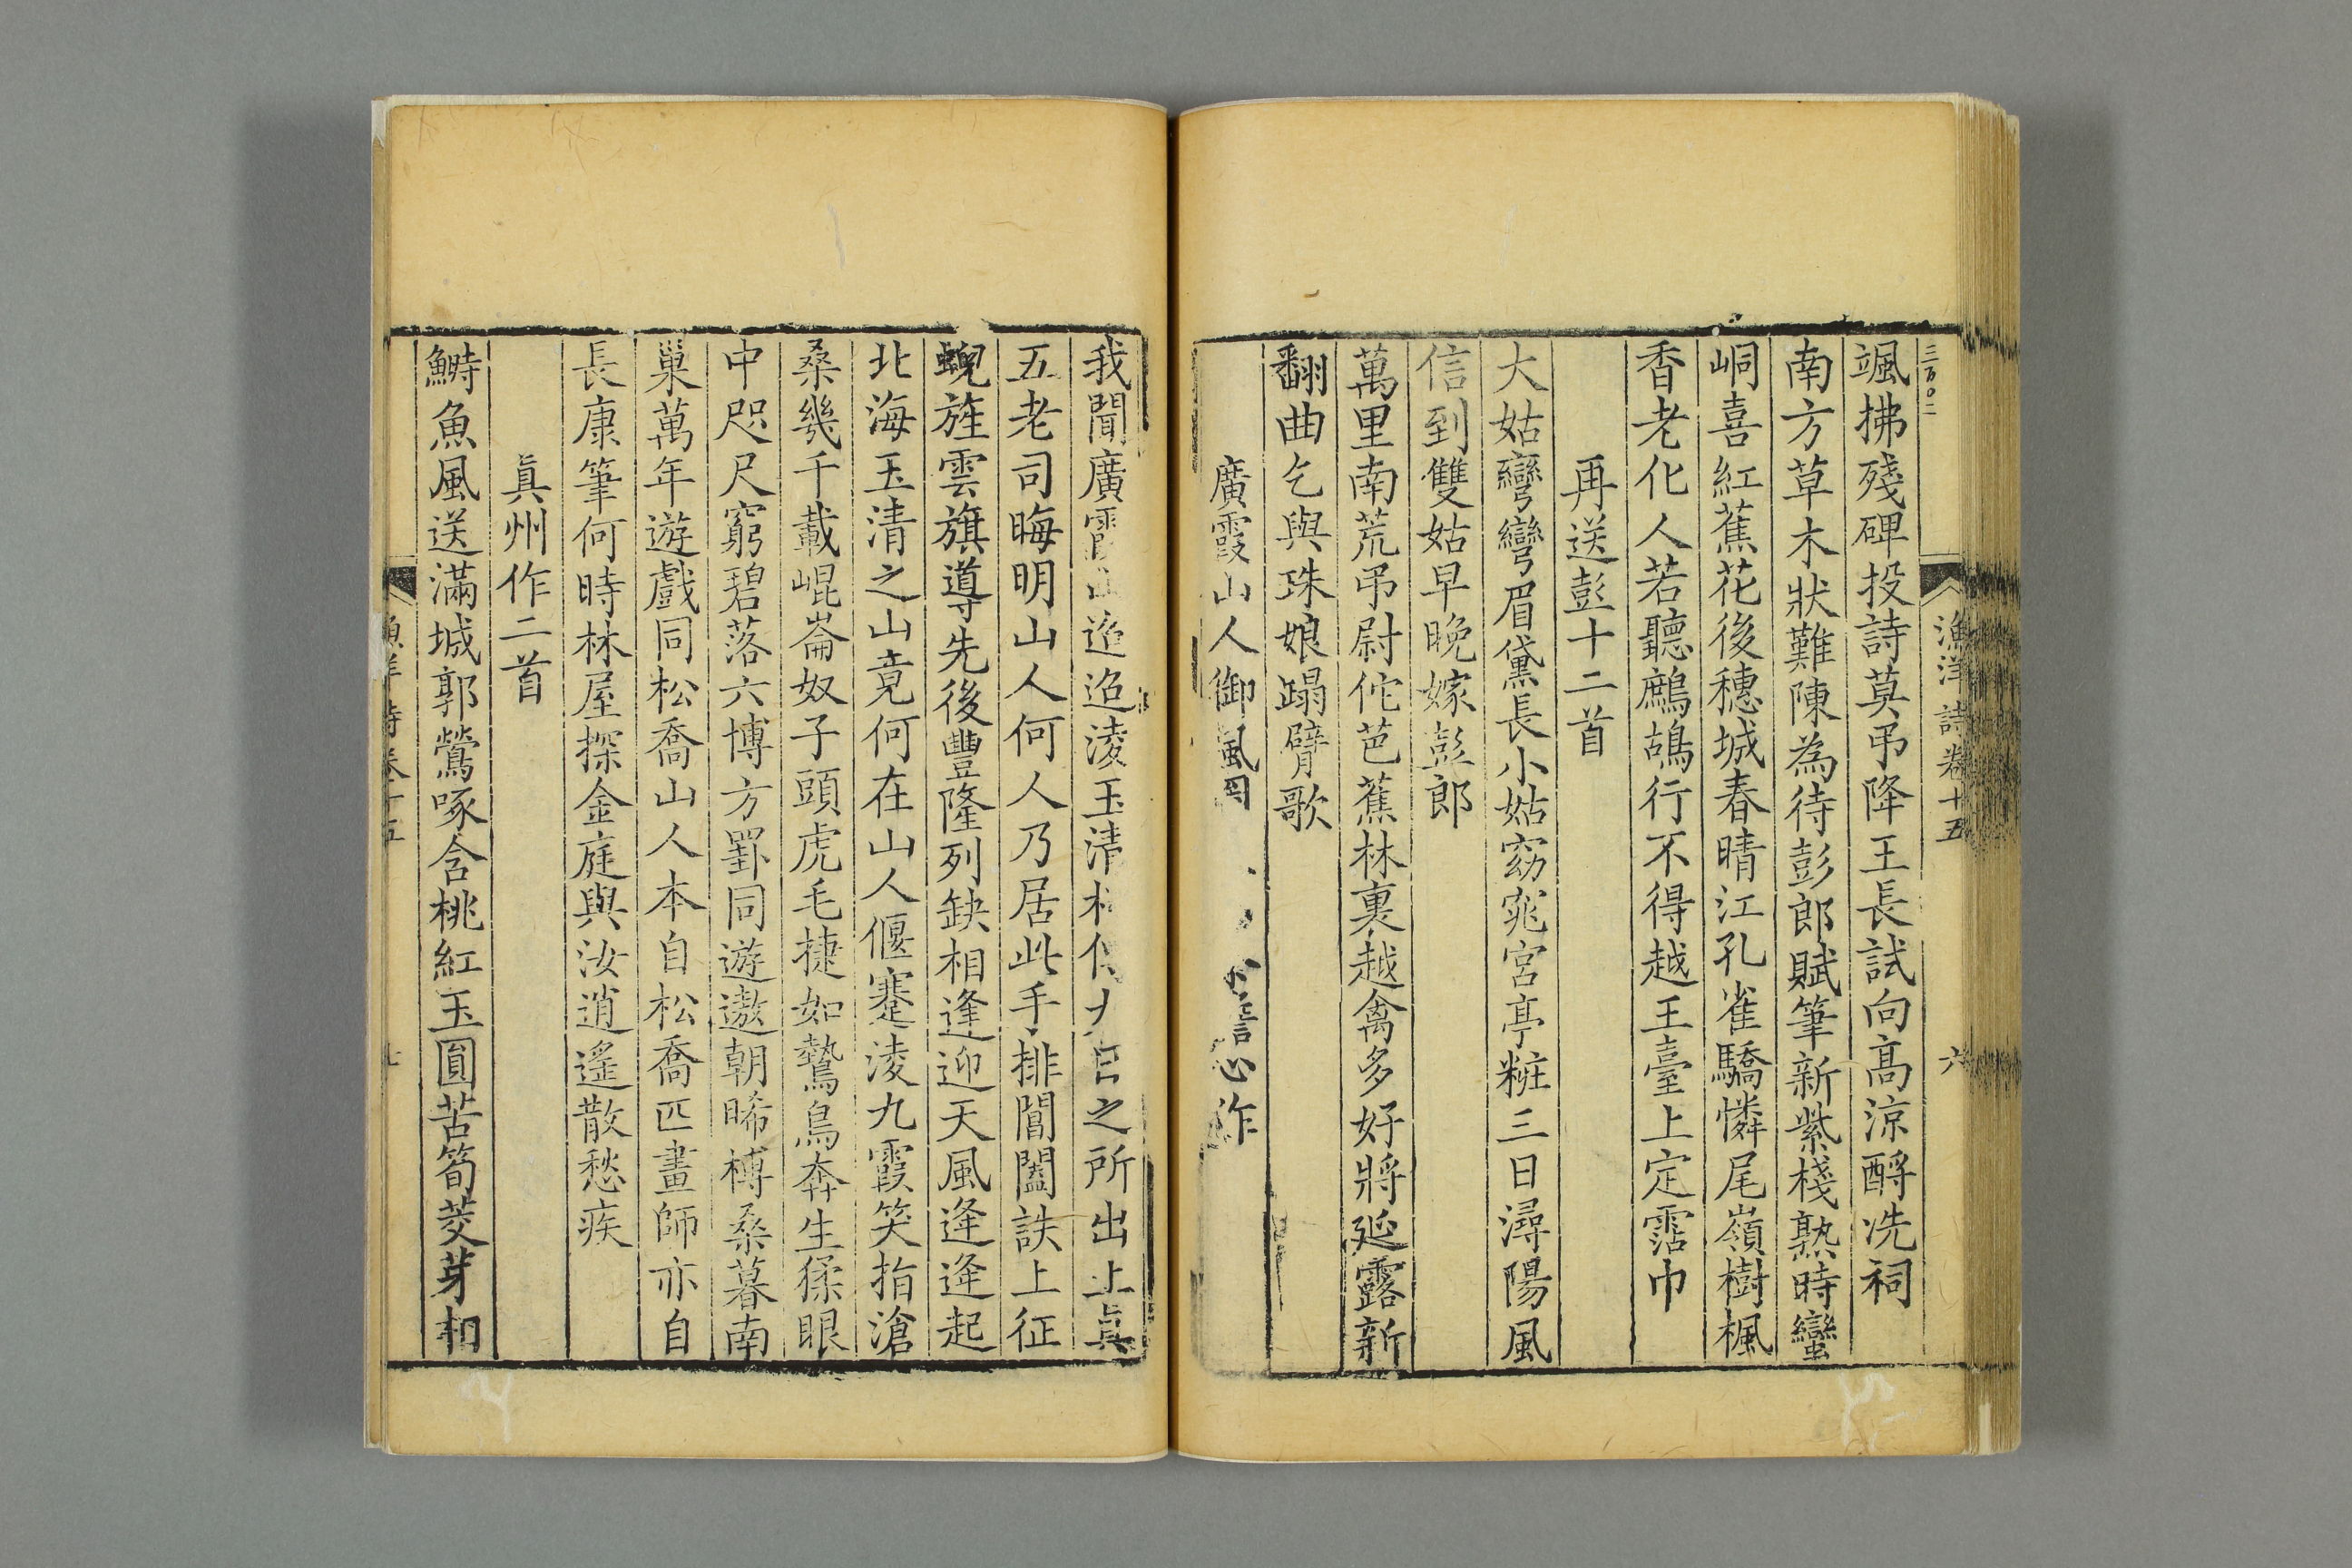 三百〇二
漁洋詩卷十五
六
颯拂殘碑投詩莫弔降王長試向高涼酹冼祠
南方草木狀難陳為待彭郎賦筆新紫棧熟時蠻
峒喜紅蕉花後穗城春晴江孔雀驕憐尾嶺樹楓
香老化人若聽鷓鴣行不得越王臺上定霑巾
再送彭十二首
大姑彎彎眉黛長小姑窈窕宮亭粧三日潯陽風
信到雙姑早晚嫁彭郎
萬里南荒弔尉佗芭蕉林裏越禽多好將延露新
翻曲乞與珠娘蹋臂歌
廣霞山人御風圖 心作
我聞廣霞山迢迢淩玉清 之所出上真
五老司晦明山人何人乃居此手排閶闔詄上征
蜺旌雲旗導先後豐隆列缺相逢迎天風逄逄起
北海玉清之山竟何在山人偃蹇淩九霞笑指滄
桑幾千載崐崙奴子頭虎毛捷如鷙鳥奔生猱眼
中咫尺窮碧落六博方罫同遊遨朝晞榑桑暮南
巢萬年遊戲同松喬山人本自松喬匹畫師亦自
長康筆何時林屋探金庭與汝逍遙散愁疾
真州作二首
鰣魚風送滿城郭鶯啄含桃紅玉圓苦筍茭芽相
漁洋詩卷十五
七